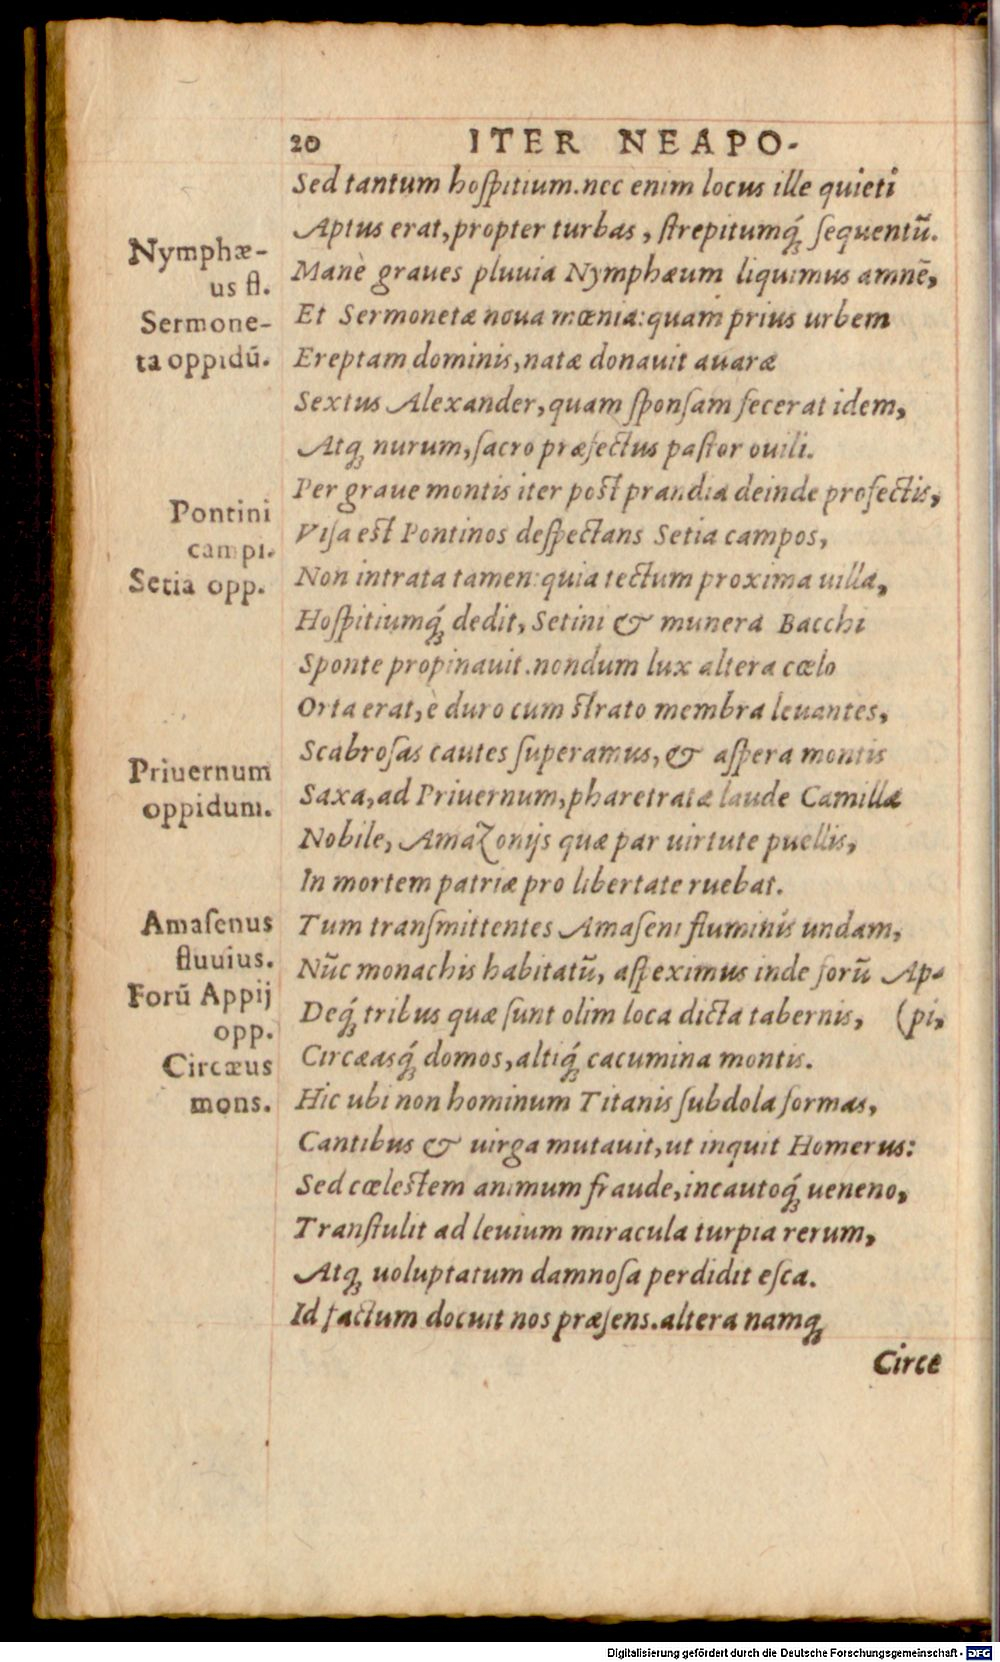 20 ITER NEAPO-
Sed tantum hoſpitium. nec enim locus ille quieti
Aptus erat, propter turbas, ſtrepitumq́; ſequentũ.
Nymphæ-
us fl.
Manè graues pluuia Nymphæum liquimus amnẽ,
Et Sermonetæ noua mœnia: quam prius urbem
Sermone-
ta oppidũ.
Ereptam dominis, natæ donauit auaræ
Sextus Alexander, quam ſponſam fecerat idem,
Atq; nurum, ſacro præfectus paſtor ouili.
Per graue montis iter poſt prandia deinde profectis,
Pontini
campi.
Viſa eſt Pontinos deſpectans Setia campos,
Setia opp.
Non intrata tamen: quia tectum proxima uilla,
Hoſpitiumq́; dedit, Setini & munera Bacchi
Sponte propinauit. nondum lux altera cœlo
Orta erat, è duro cum ſtrato membra leuantes,
Scabroſas cautes ſuperamus, & aſpera montis
Priuernum
oppidum.
Saxa, ad Priuernum, pharetratæ laude Camillæ
Nobile, Amazonijs quæ par uirtute puellis,
In mortem patriæ pro libertate ruebat.
Amaſenus
fluuius.
Tum tranſmittentes Amaſeni fluminis undam,
Nũc monachis habitatũ, aſpeximus inde forũ Ap-
Forũ Appij
opp.
Deq́; tribus quæ ſunt olim loca dicta tabernis, (pi,
Circæus
mons.
Circæasq́; domos, altiq́; cacumina montis.
Hic ubi non hominum Titanis ſubdola formas,
Cantibus & uirga mutauit, ut inquit Homerus:
Sed cœleſtem animum fraude, incautoq́; ueneno,
Tranſtulit ad leuium miracula turpia rerum,
Atq; uoluptatum damnoſa perdidit eſca.
Id factum docuit nos præſens. altera namq;
Circe
Digitalisierung gefördert durch die Deutsche Forschungsgemeinschaft - DFG